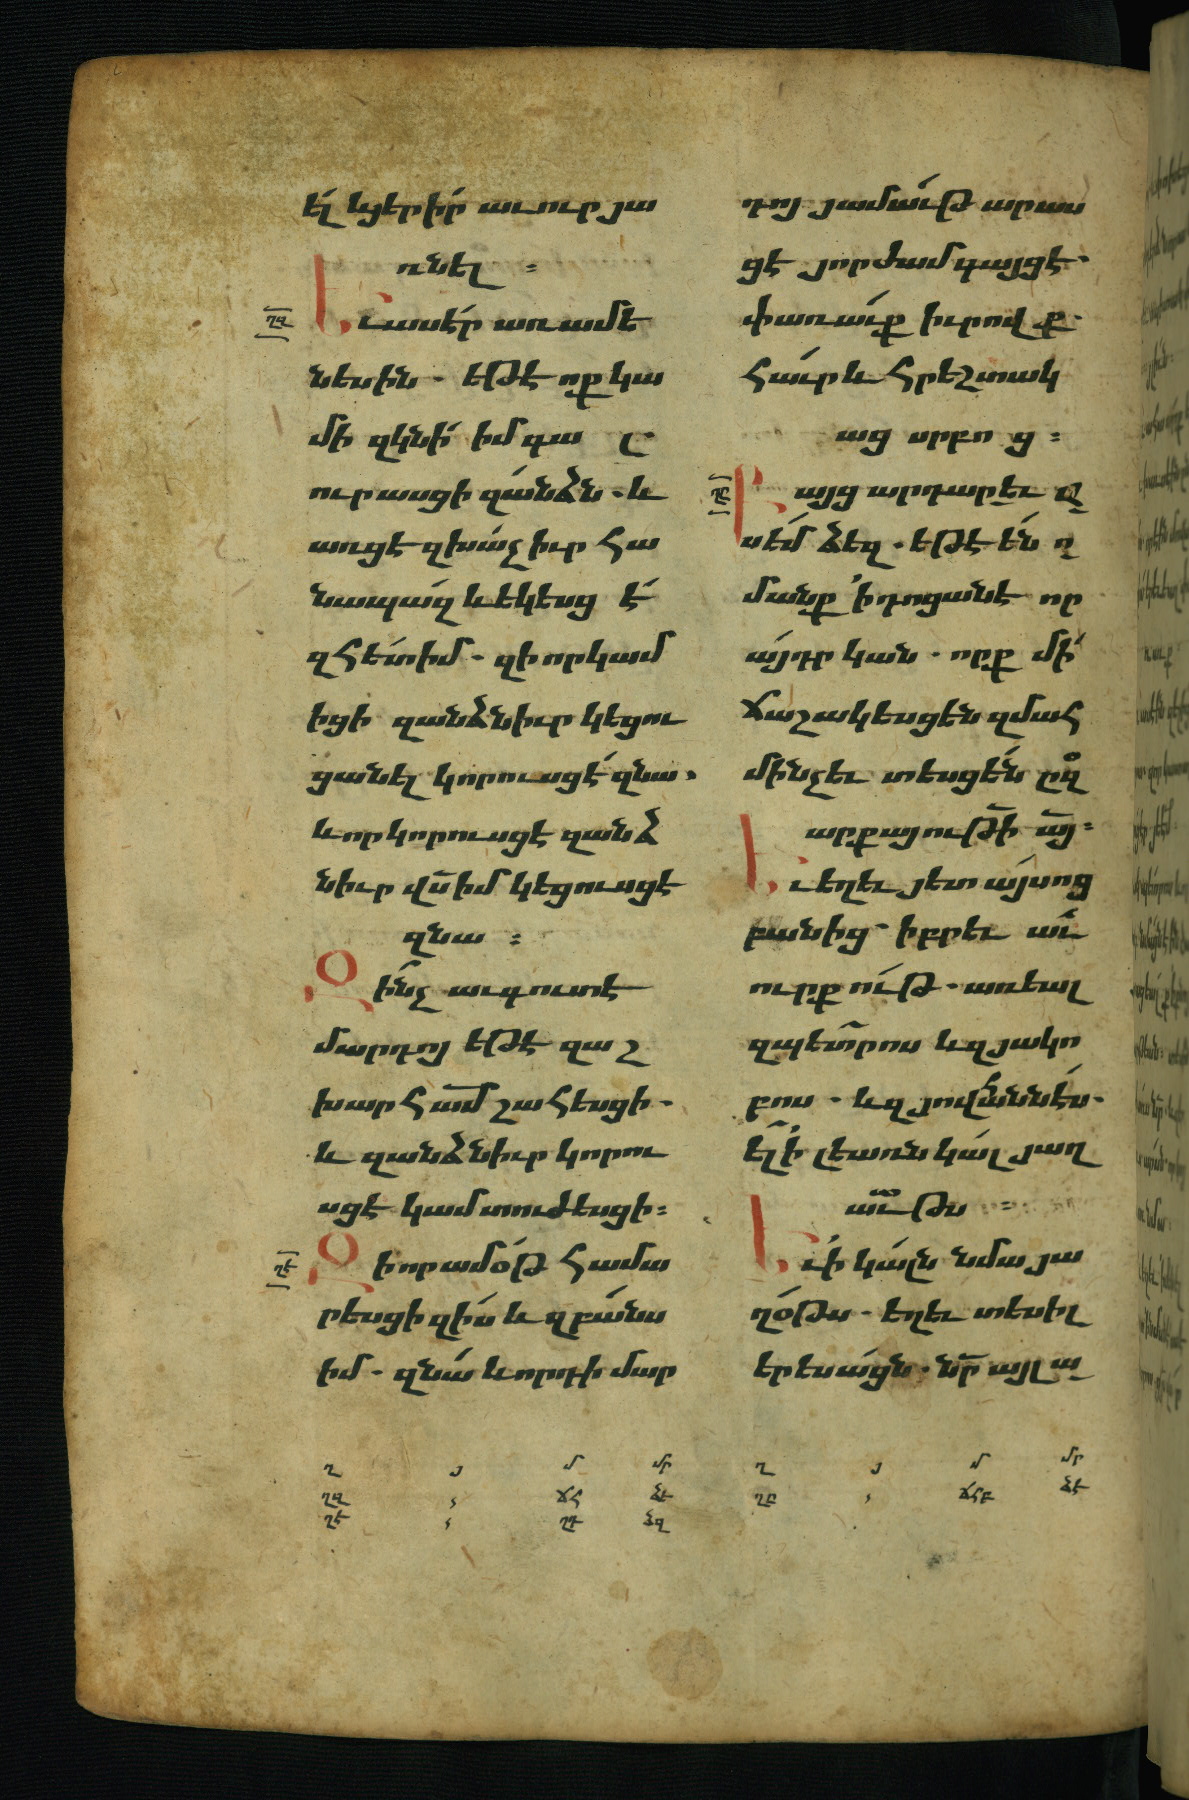 ել եյերիր աւուր յա
ռնել ։
ՂԶ
Եւ ասէր առ ամե
նեսին . եթէ ոք կա
մի զկնի իմ գա լ.
ուրասցի զանձն . և
առցէ զխաչ իւր հա
նապազ և եկեսց է
զհետ իմ . զի որ կամ
իցի զանձն իւր կեցու
ցանել կորուսցէ զնա .
և որ կորուսցէ զանձ
ն իւր վս իմ կեցուսցէ
զնա ։
Զինչ աւգուտ է
մարդոյ եթէ զաշ
խարհ ամ շահեսցի .
և զանձն իւր կորու
սցէ կամ տուժեսցի ։
ՂԷ
Զի որ ամօթ համա
րեսցի զիս և զբանս
իմ . զնա և որդի մար
դոյ յամաւթ արաս
ցէ յորժամ գայցէ .
փառաւք իւրովք .
հաւր և հրեշտակ
աց սրբո ց ։
ՂԸ
Բայց արդարեւ ա
սեմ ձեզ . եթէ են ո
մանք ի դոցանէ որ
այդր կան . որք մի
ճաշակեսցեն զմահ
մինչեւ տեսցեն զ
արքայութի այ ։
Եւ եղեւ յետ այսոց
բանից իբրեւ աւ
ուրք ութ . առեալ
զպետրոս և զյակո
բոս . և զյովհաննէս .
ել ի լեառն կալ յաղ
աւթս ։
Եւ ի կալն նմա յա
ղօթս . եղեւ տեսիլ
երեսացն . նր այլ ա
Ղ յ մ մր
ՂԶ ՃՀ ՁԷ
ՂԷ ՂԴ ՁԶ
Ղ յ մ մր
ՂԸ ՃՀԲ ՁԷ